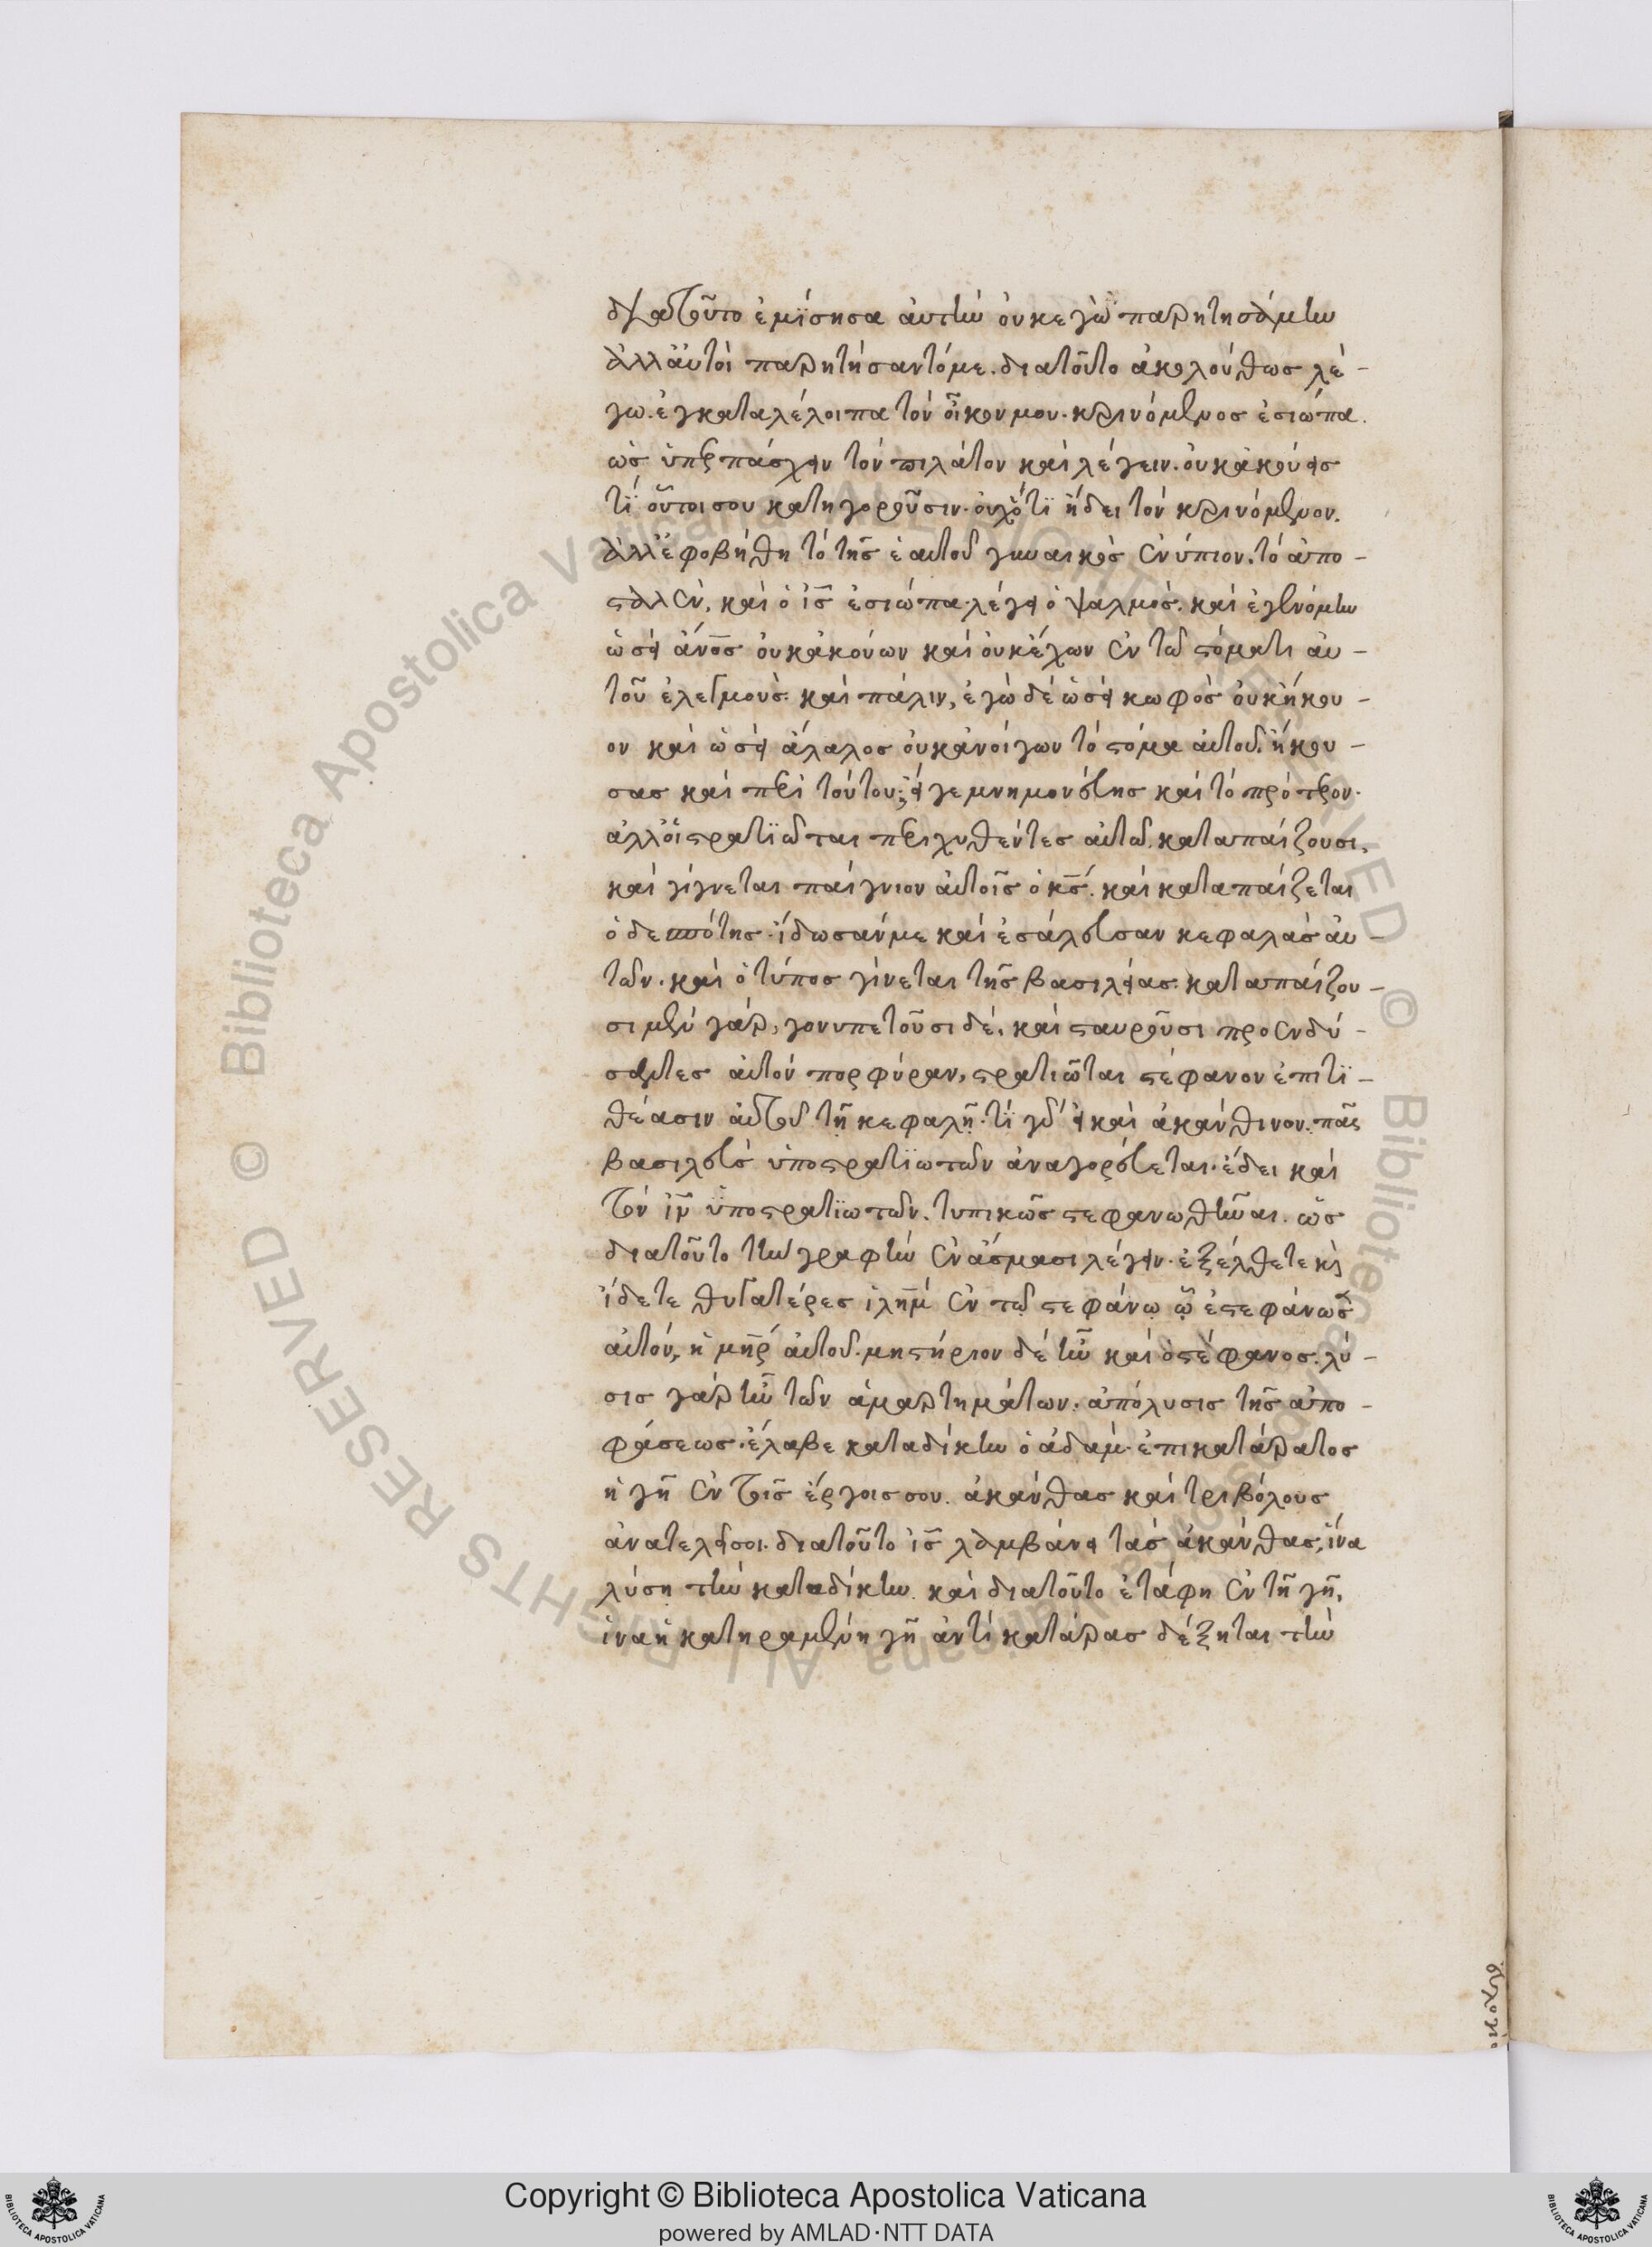 διατοῦτο ἐμίσησα ἀυτὴν ὀυκεγὼ παρητησάμην
ἀλλἀυτὸι παρητήσαντόμε. διατοῦτο ἀκολούθως λέ-
γω. ἐγκαταλέλοιπα τὸν οἶκον μου. κρινόμενος ἐσιώπα.
ὡς ὑπερπάσχειν τὸν πιλάτον καὶ λέγειν. ὀυκἀκούεις
τί οὗτοι σου κατηγοροῦσιν. ὀυχὅτϊ ἤδει τὸν κρινόμενον.
ἀλλἐφοβήθη τὸ τῆς ἑαυτοῦ γυναικὸς ἐνύπιον. τὸ ἀπο-
σταλὲν. καὶ ὁ ἰς ἐσιώπα. λέγει ὁ ψαλμός. καὶ ἐγενόμην
ὡσεὶ ἄνος ὀυκἀκούων καὶ ὀυκἔχων ἐν τῶ στόματι ἀυ-
τοῦ ἐλεγμοὺς. καὶ πάλιν, ἐγὼ δὲ ὡσεὶ κωφὸς ὀυκἤκου-
ον καὶ ὡσεὶ ἄλαλος ὀυκἀνοίγων τὸ στόμα ἀυτοῦ. ἤκου-
σας καὶ περὶ τούτου; εἴ γε μνημονεύεις καὶ τὸ πρότερον.
ἀλλὁι στρατϊῶται περιχυθέντες ἀυτῶ. καταπαίζουσι.
καὶ γίγνεται παίγνιον ἀυτοῖς ὁ κς. καὶ καταπαίζεται
ὁ δεσπότης. ἴδωσάν με καὶ ἐσάλευσαν κεφαλὰς ἀυ-
τῶν. καὶ ὁ τύπος γίνεται τῆς βασιλείας. καταπαίζου-
σι μὲν γὰρ, γονυπετοῦσι δέ. καὶ σταυροῦσι προενδύ-
σαντες ἀυτὸν πορφύραν, στρατιῶται στέφανον ἐπιτϊ-
θέασιν ἀυτοῦ τῆ κεφαλῆ. τί γὰρ εἰ καὶ ἀκάνθινον. πᾶς
βασιλεὺς ὑποστρατϊωτῶν ἀναγορεύεται. ἔδει καὶ
τὸν ἰν ὑποστρατϊωτῶν. τυπικῶς στεφανωθῆναι. ὡς
διατοῦτο τὴν γραφὴν ἐν ἄσμασι λέγειν. ἐξέλθετε καὶ
ἴδετε θυγατέρες ἱλημ ἐν τῶ στεφάνω ᾧ ἐστεφάνωσε
ἀυτόν, ἡ μηρ ἀυτοῦ. μηστήριον δὲ ἦν καὶ ὁ στέφανος. λύ-
σις γὰρ ἦν τῶν ἁμαρτημάτων. ἀπόλυσις τῆς ἀπο-
φάσεως. ἔλαβε καταδίκην ὁ ἀδαμ. ἐπικατάρατος
ἡ γῆ ἐν τοῖς ἔργοις σου. ἀκάνθας καὶ τριβόλους
ἀνατελεῖ σοι. διατοῦτο ἰς λαμβάνει τὰς ἀκάνθας, ἵνα
λύση τὴν καταδίκην. καὶ διατοῦτο ἐτάφη ἐν τῆ γῆ,
ἵνα ἡ κατηραμένη γῆ ἀντὶ κατάρας δέξηται τὴν
Copyright © Biblioteca Apostolica Vaticana
powered by AMLAD·NTT DATA